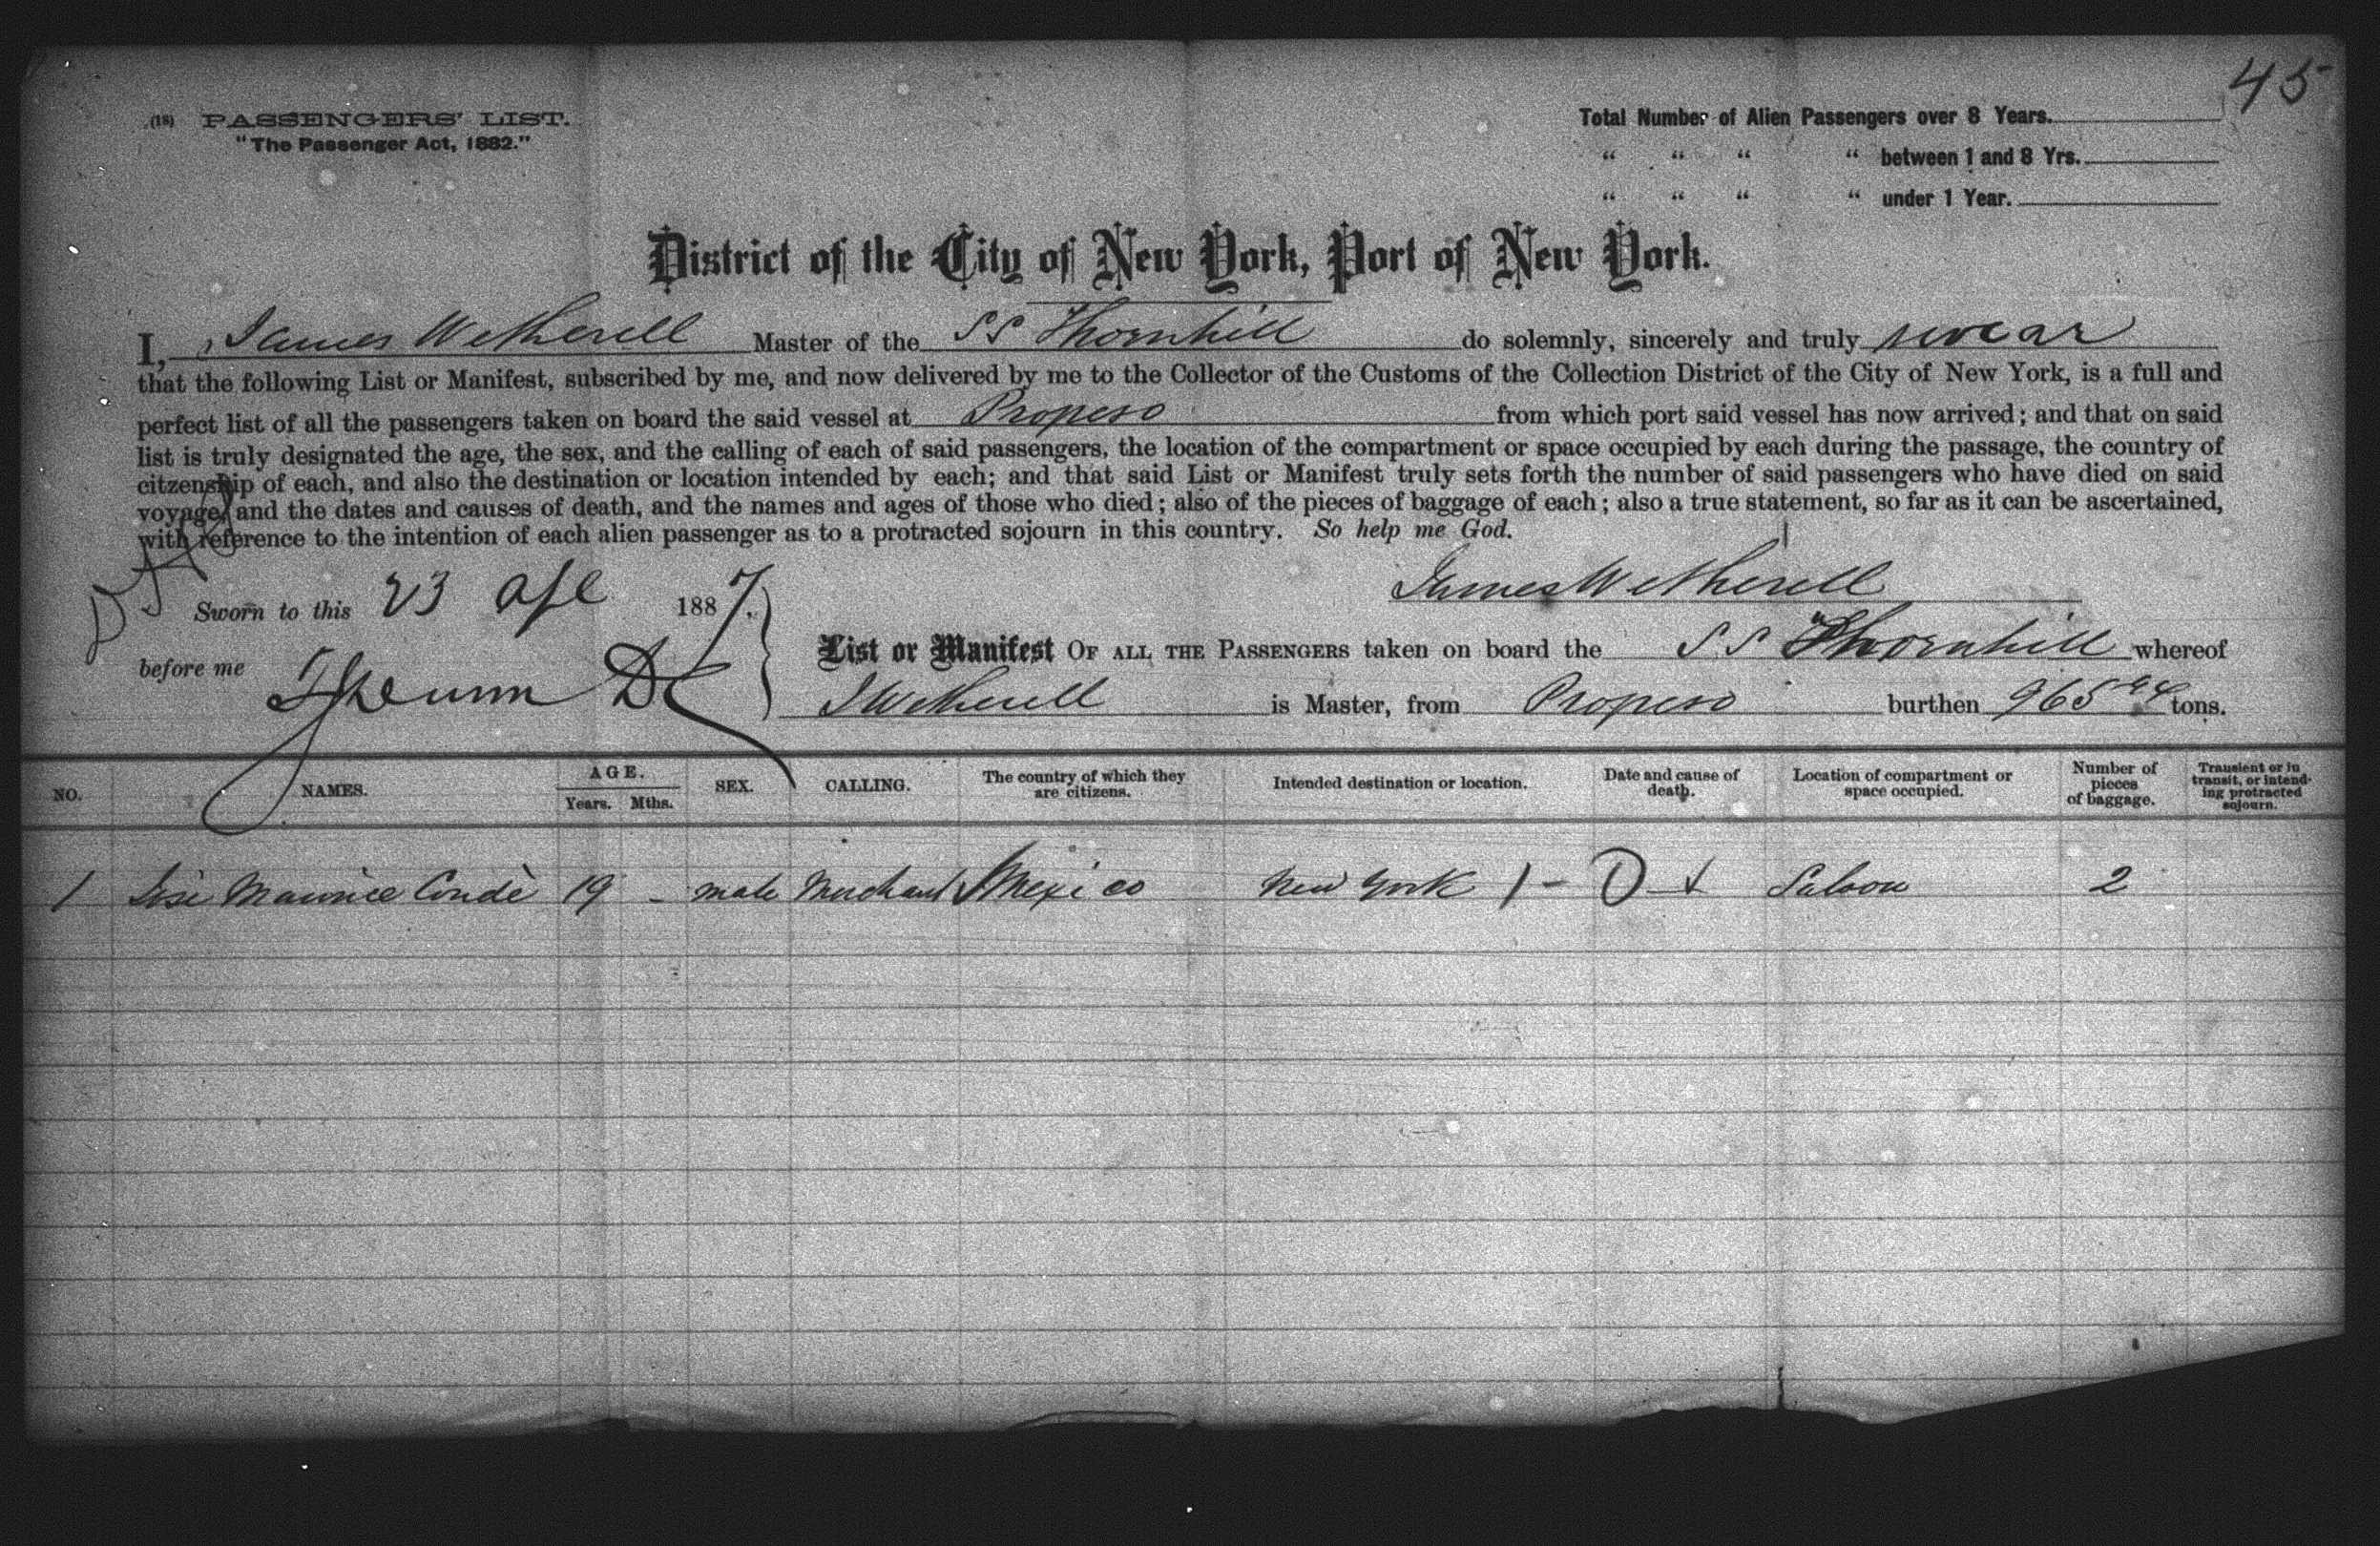 45
(18) PASSENGERS' LIST.
"The Passenger Act, 1882."
Total Number of Alien Passengers over 8 Years.
" " " " between 1 and 8 Yrs.
" " " " under 1 Year.
District of the City of New York, Port of New York.
I, James Wetherell Master of the SS Thornhill do solemnly, sincerely and truly swear
that the following List or Manifest, subscribed by me, and now delivered by me to the Collector of the Customs of the Collection District of the City of New York, is a full and
perfect list of all the passengers taken on board the said vessel at Progreso from which port said vessel has now arrived; and that on said
list is truly designated the age, the sex, and the calling of each of said passengers, the location of the compartment or space occupied by each during the passage, the country of
citzenship of each, and also the destination or location intended by each; and that said List or Manifest truly sets forth the number of said passengers who have died on said
voyage, and the dates and causes of death, and the names and ages of those who died; also of the pieces of baggage of each; also a true statement, so far as it can be ascertained,
with reference to the intention of each alien passenger as to a protracted sojourn in this country. So help me God.
James Wetherell
Sworn to this 23 Apl 1887.
before me
List or Manifest OF ALL THE PASSENGERS taken on board the SS Thornhill whereof
J Wetherell is Master, from Progreso burthen 965 tons.
NO. NAMES. AGE. Years. Mths. SEX. CALLING. The country of which they are citizens. Intended destination or location. Date and cause of death. Location of compartment or space occupied. Number of pieces of baggage. Transient or in transit, or intending protracted sojourn.
1 Maurice Condè 19 - male Merchant Mexico New York 1 - 0 Saloon 2